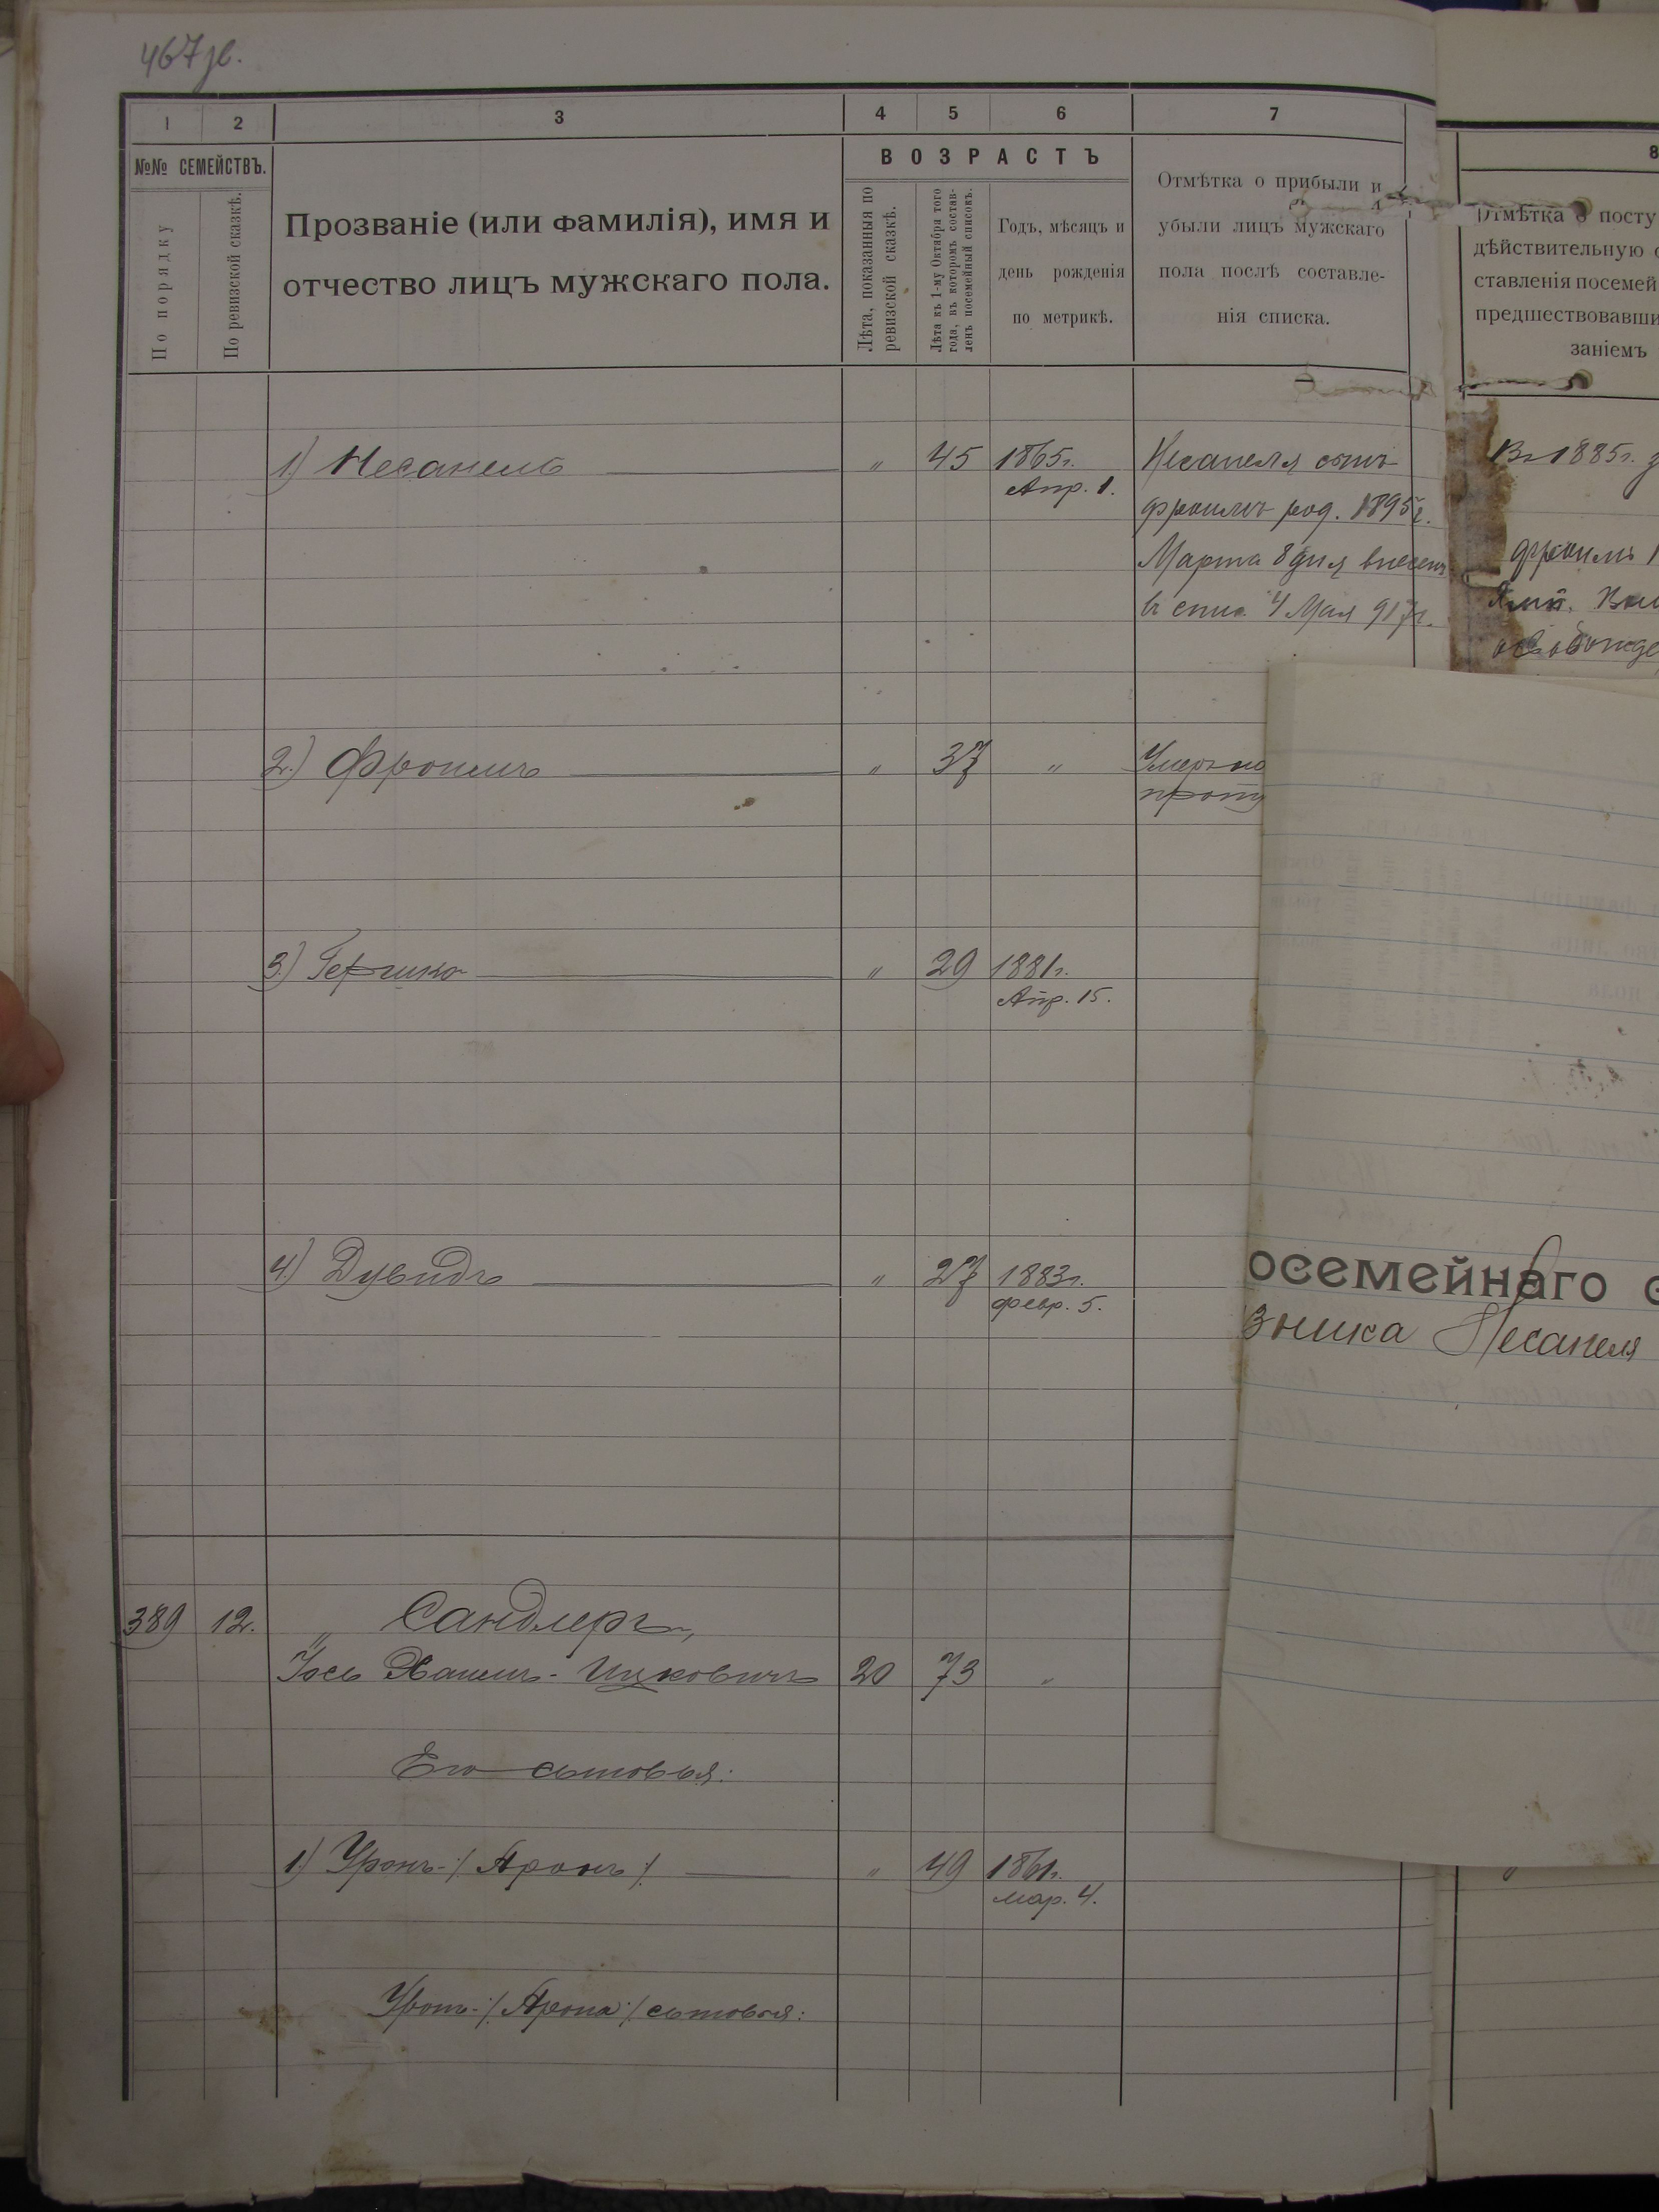 467 зв.
1 2 3 4 5 6 7 8
№№ СЕМЕЙСТВЪ.
По порядку
По ревизской сказкѣ.
Прозваніе (или фамилія), имя и
отчество лицъ мужскаго пола.
ВОЗРАСТЪ
Лѣта, показанныя по
ревизской сказкѣ.
Лѣта къ 1-му Октября того
года, въ которомъ состав-
ленъ посемейный списокъ.
Годъ, мѣсяцъ и
день рожденія
по метрикѣ.
Отмѣтка о прибыли и
убыли лицъ мужскаго
пола послѣ составле-
нія списка.
Отмѣтка о посту
дѣйствительную с
ставленія посемей
предшествовавши
заніемъ
1) Несанель " 45 1865г.
Апр. 1.
Несанеля сынъ
Фроимъ род. 1895г.
Марта 8 дня внесенъ
в спис. 4 Мая 917г.
В 1885г. з
Фроимъ
освобожде
2) Фроимъ " 37 "
Умеръ по
проту
3) Гершко " 29 1881г.
Апр. 15.
4) Дувидъ " 27 1883г.
Февр. 5.
осемейнаго с
зника Несанеля
389 12. " Сандлеръ,
Іось Хаимъ-Ицковичъ 20 73 "
Его сыновья:
1) Уронъ-/Аронъ/. " 49 1861г.
мар. 4.
Урона-/Арона/сыновья: